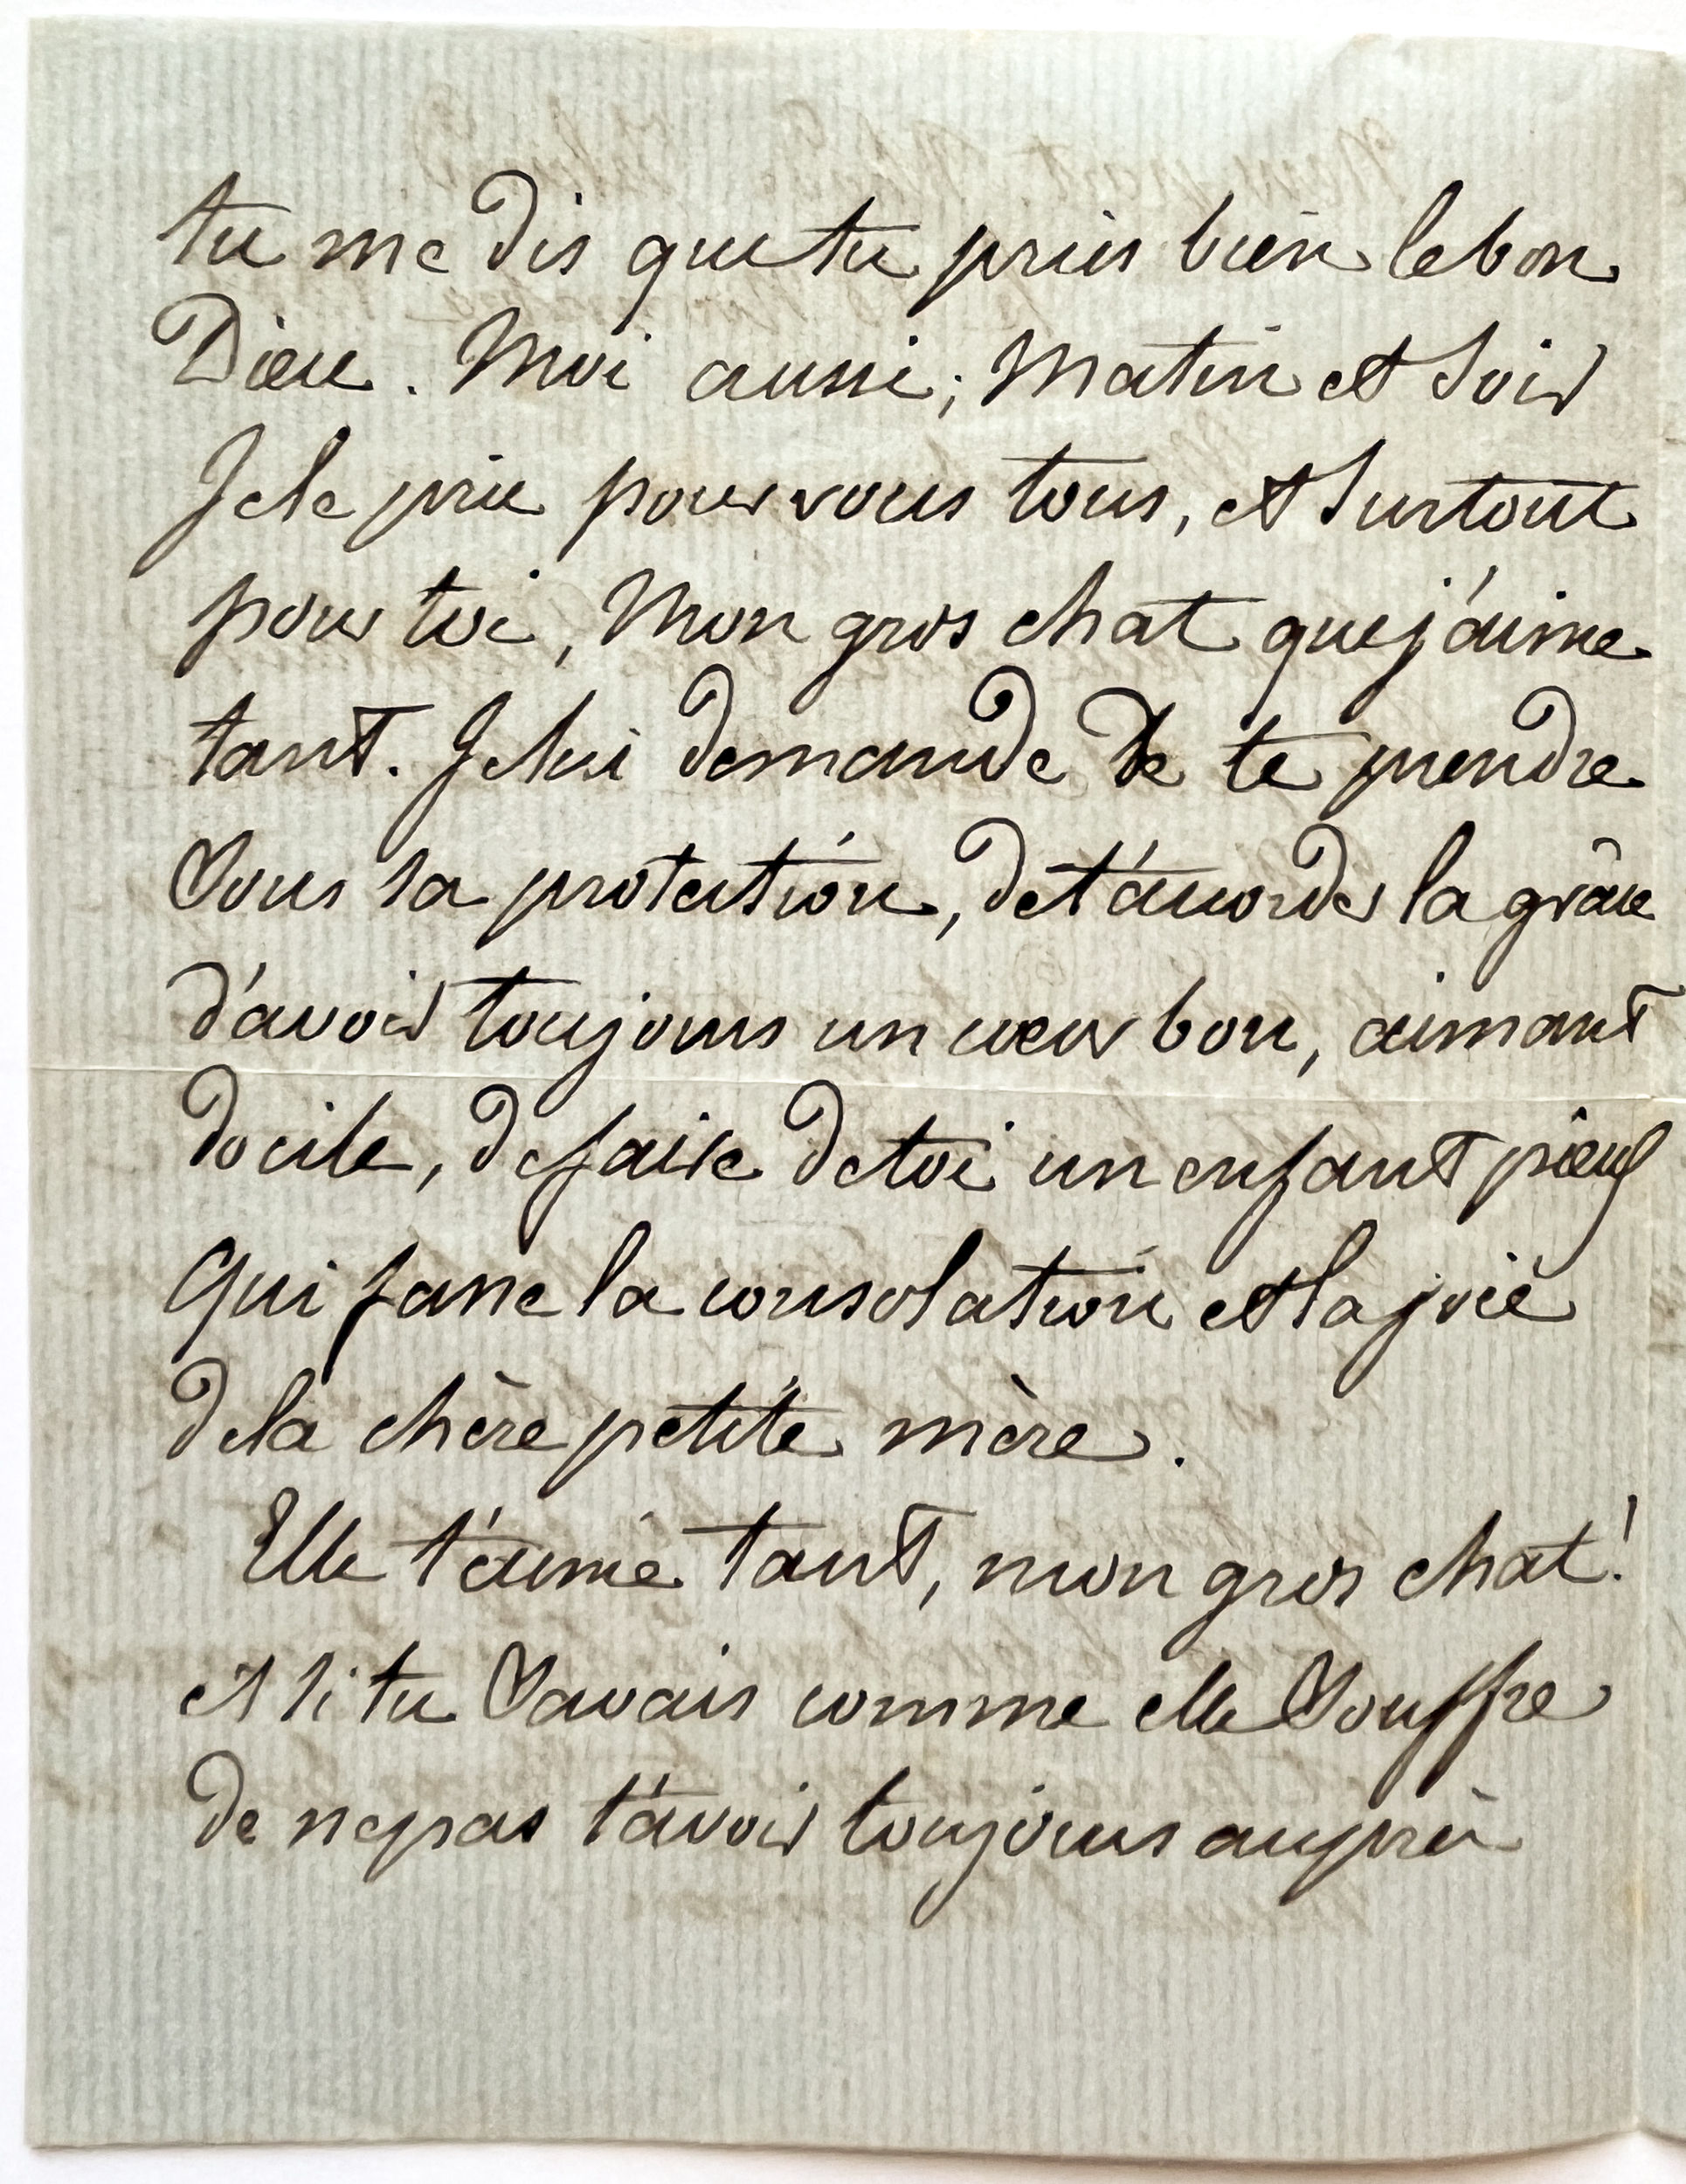 tu me dis que tu pries bien le bon
Dieu. Moi aussi; Matin et Soir
Je le prie pour vous tous, et Surtout
pour toi, Mon gros chat que j'aime
tant. Je lui demande De te prendre
Sous sa protection, de t'accorder la grâce
d'avoir toujours un cœur bon, aimant
docile, de faire de toi un enfant pieux
Qui fasse la consolation et la joie
de la chère petite mère.
Elle t'aime tant, mon gros chat!
et si tu Savais comme elle Souffre
de ne pas t'avoir toujours auprès